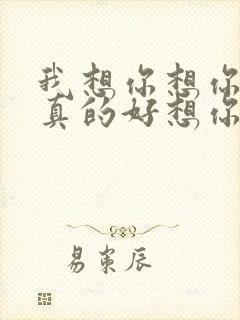 我想你想你
真的好想你
易寒辰